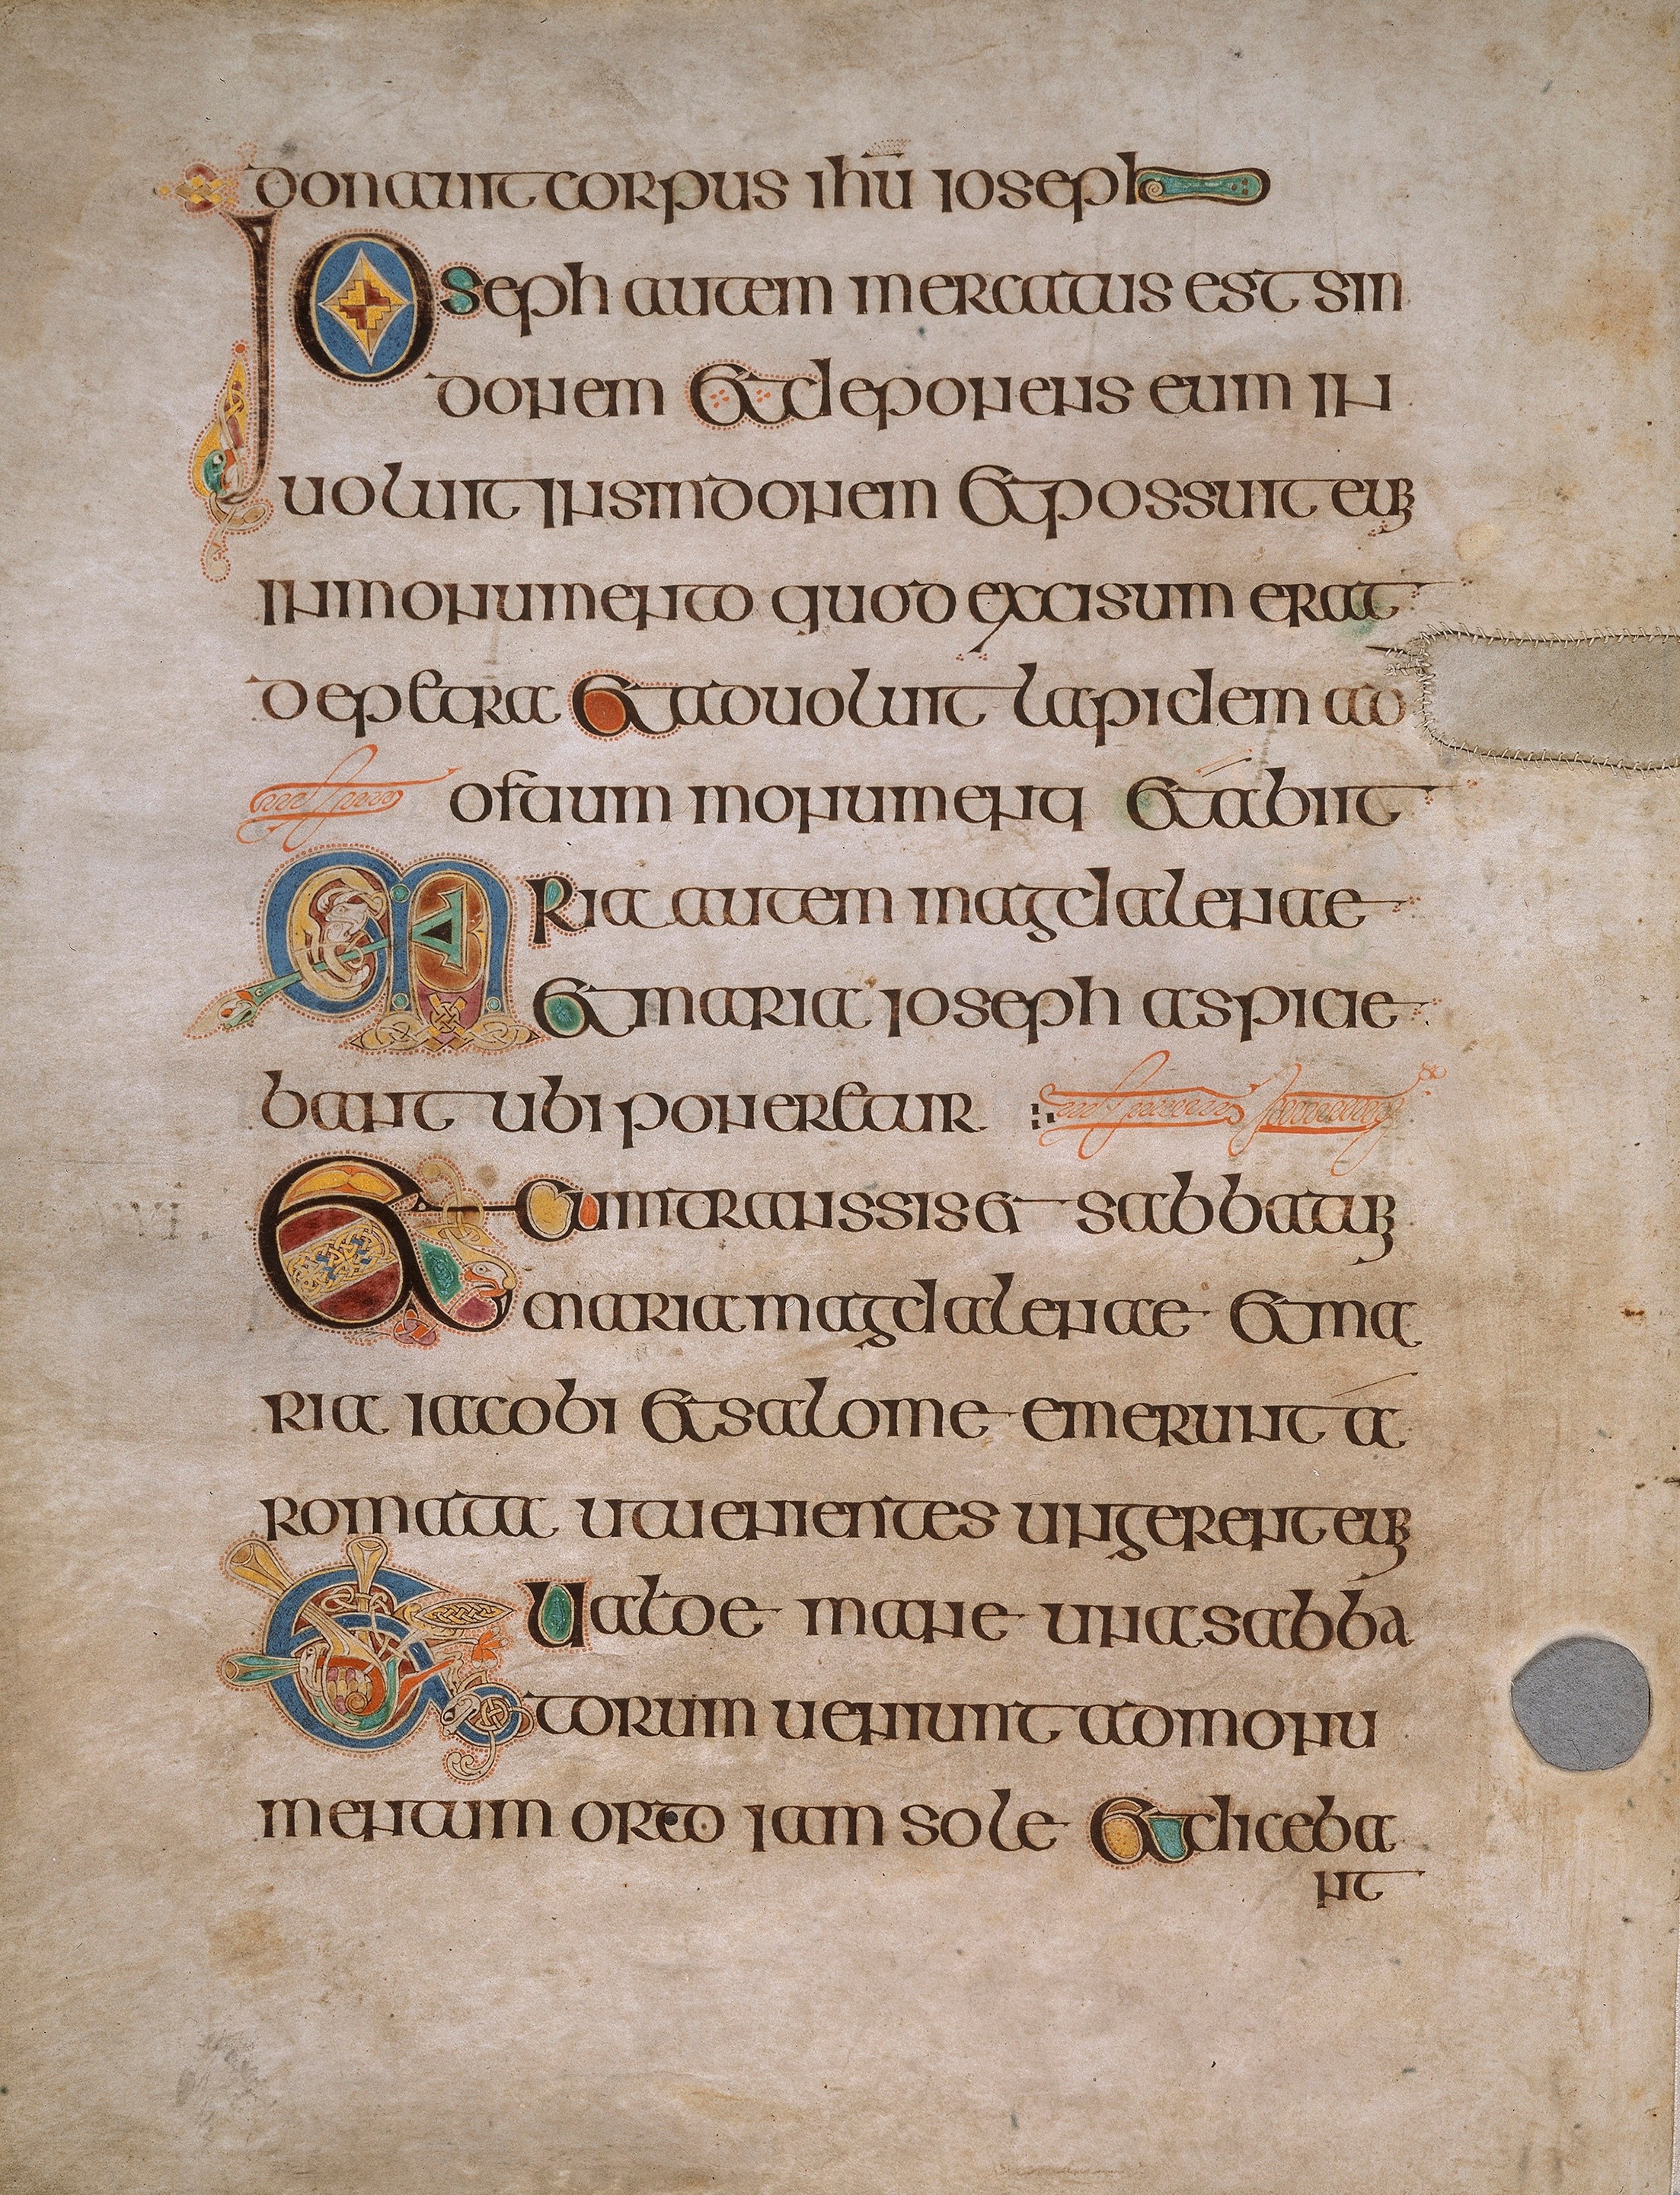 donauit corpus ihū ioseph
Joseph autem mercatus est sin
donem et deponens eum in
uoluit in sindonem et possuit eum
in monumento quod excisum erat
de petra et aduoluit lapidem ad
osteum monumenti et abiit
Maria autem magdalenae
et maria ioseph aspicie
bant ubi poneretur
Et cum transsisset sabbatum
maria magdalenae et ma
ria iacobi et salome emerunt a
romata ut uenientes ungerent eum
Et ualde mane una sabba
torum ueniunt ad monu
mentum orto iam sole et diceba
nt